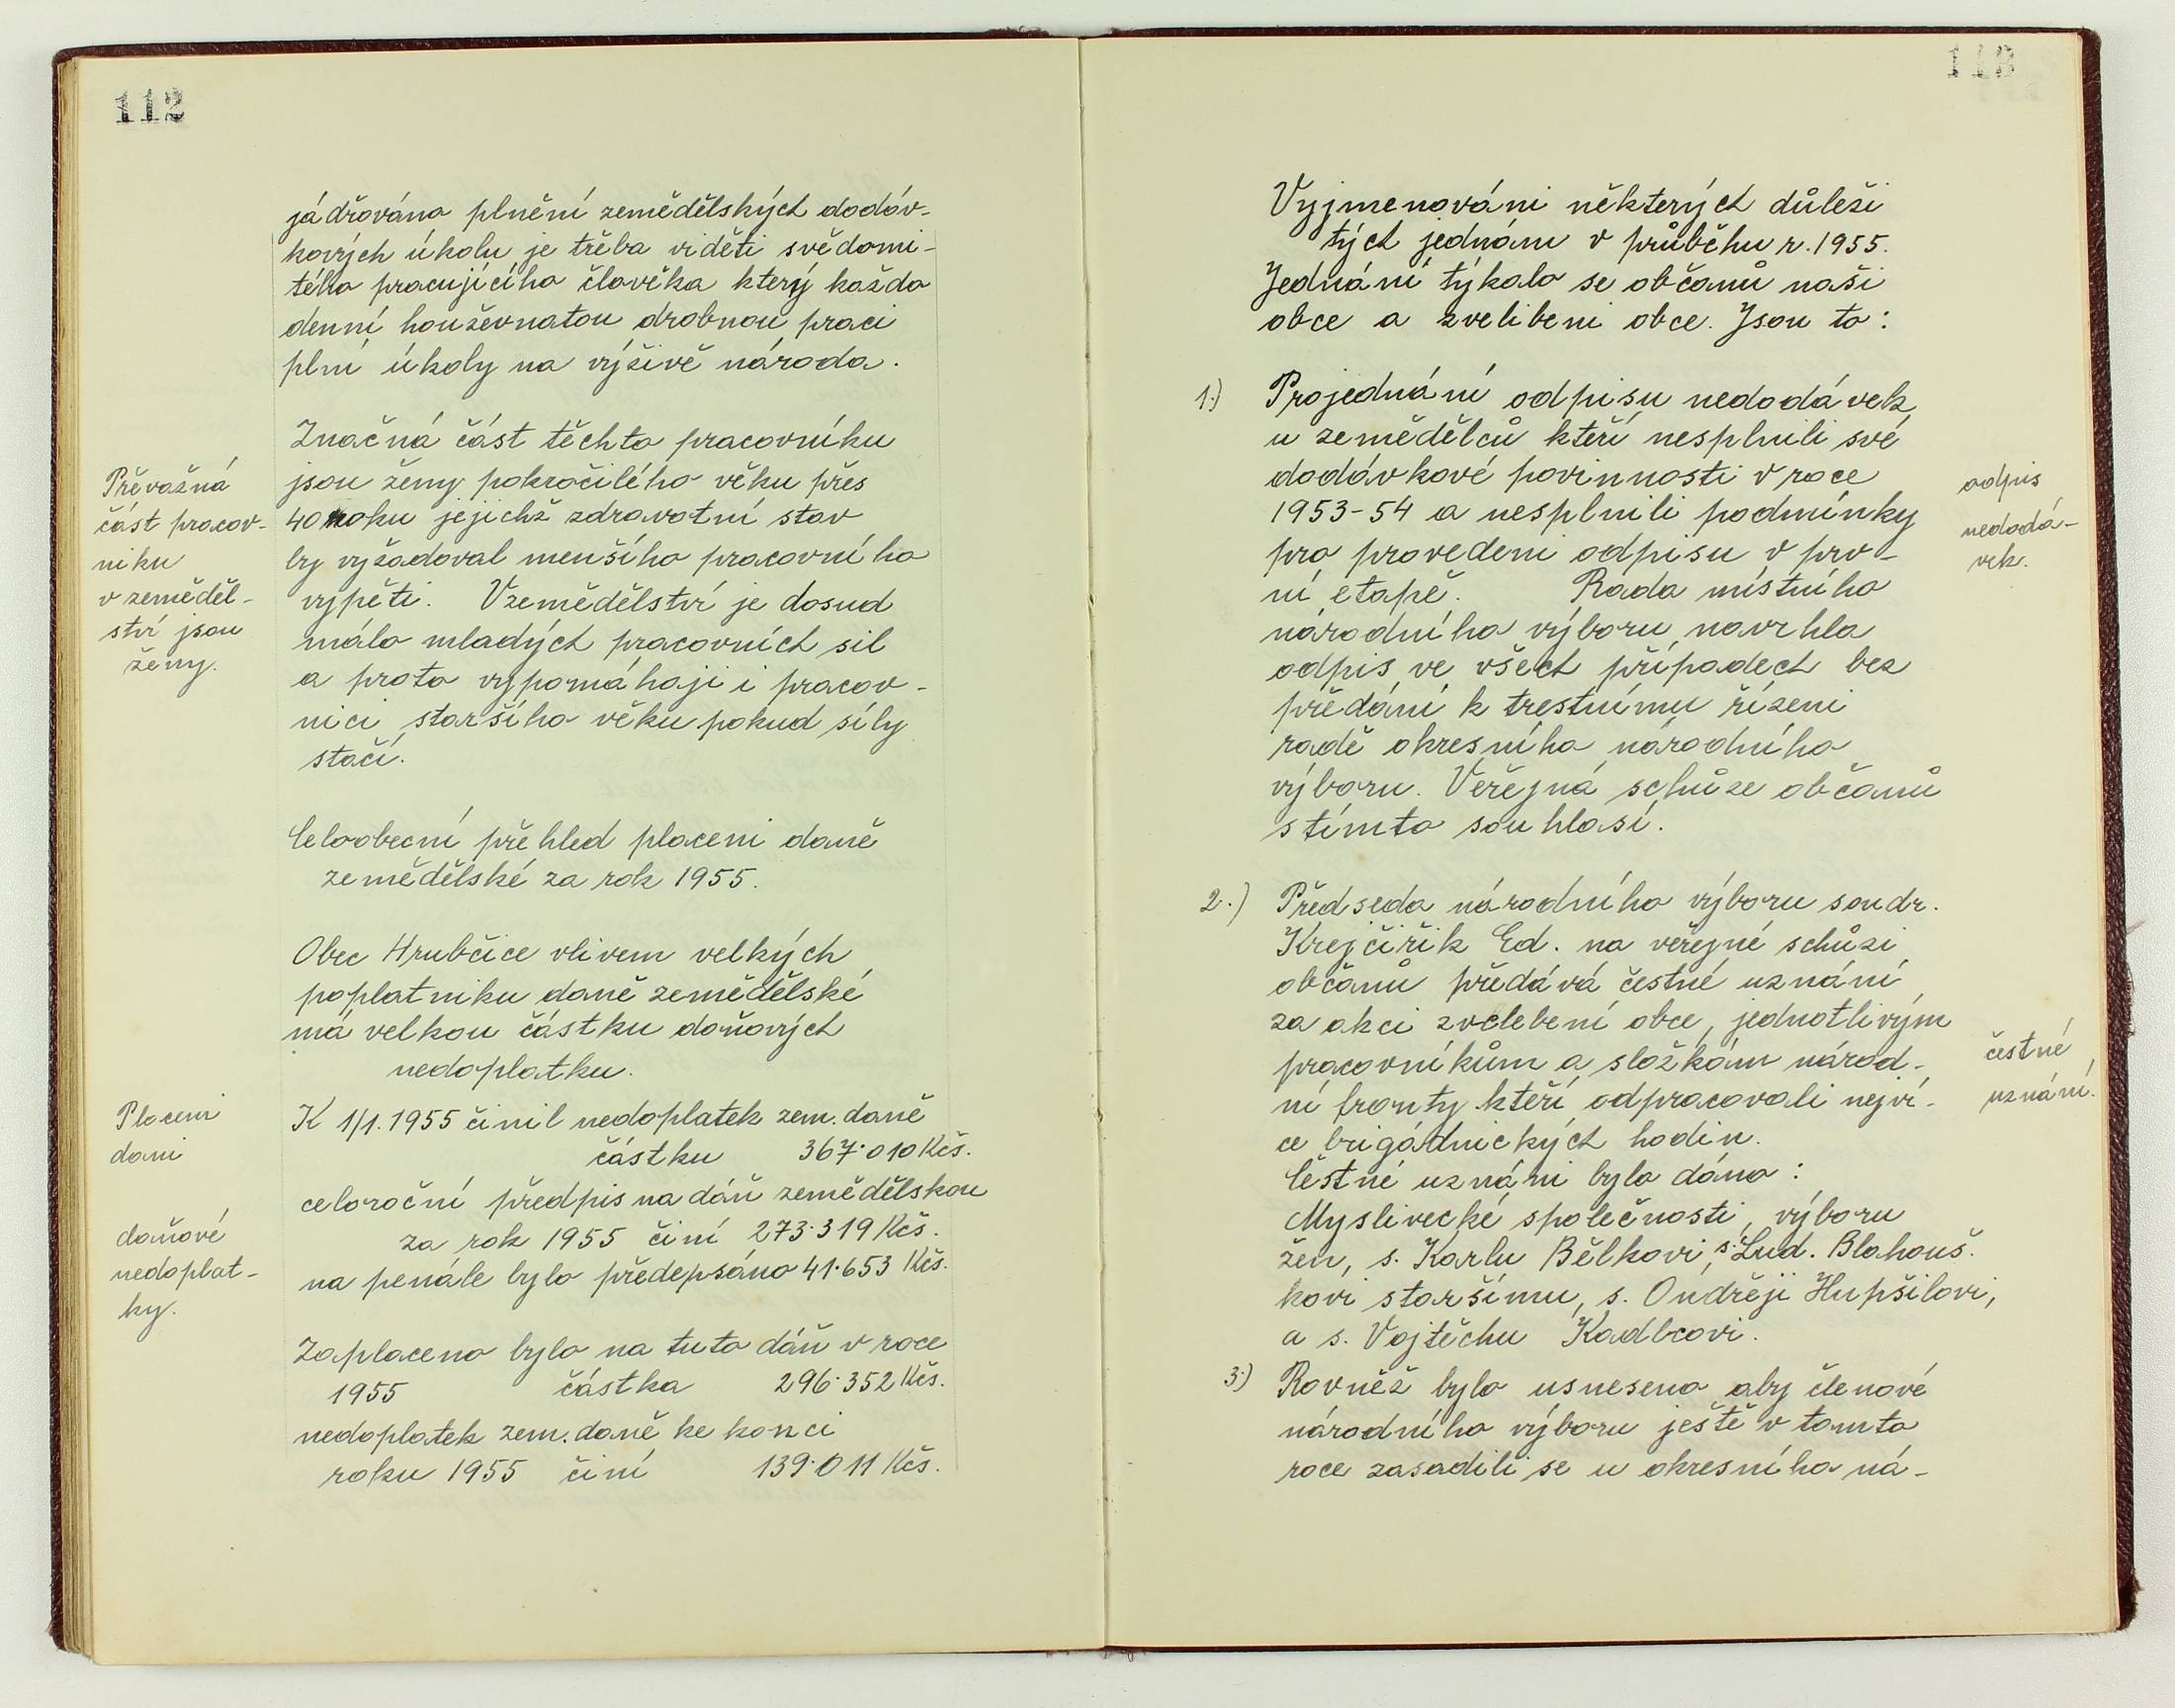 112
jádřována plnění zemědělských dodáv-
kových úkolu je třeba viděti svědomi-
tého pracujícího člověka který každo
denní houževnatou drobnou praci
plní úkoly na výživě národa.
Značná část těchto pracovníku
jsou ženy pokročilého věku přes
40 roku jejichž zdravotní stav
by vyžadoval menšího pracovního
vypěti. Vzemědělství je dosud
málo mladých pracovních sil
a proto vypomáhaji i pracov-
nici staršího věku pokud síly
stačí.
Převažná
část pracov-
niku
v zeměděl-
ství jsou
ženy.
Celoobecní přehled placeni daně
zemědělské za rok 1955.
Obec Hrubčice vlivem velkých
poplatniku daně zemědělské
má velkou částku daňových
nedoplatku.
K 1/1. 1955 činil nedoplatek zem. daně
částku 367·010 Kčs.
celoroční předpis na dáň zemědělskou
za rok 1955 činí 273·319 Kčs.
na penále bylo předepsáno 41·653 Kčs.
Zaplaceno bylo na tuto dáň v roce
1955 částka 296·352 Kčs.
nedoplatek zem. daně ke konci
roku 1955 činí 139·011 Kčs.
Placeni
dani
daňové
nedoplat-
ky.
113
Vyjmenováni některých důleži
tých jednánu v průběhu r. 1955.
Jednání týkalo se občanů naši
obce a zvelibeni obce. Jsou to:
1.) Projednání odpisu nedodávek
u zemědělců kteří nesplnili své
dodávkové povinnosti v roce
1953-54 a nesplnili podmínky
pro provedeni odpisu v prv-
ní etapě. Rada místního
národního výboru navrhla
odpis ve všech případech bez
předání k trestnímu řízeni
radě okresního národního
výboru. Veřejná schůze občanů
s tímto souhlasí.
odpis
nedodá-
vek.
2.) Předseda národního výboru soudr.
Krejčiřik Ed. na veřejné schůzi
občanů předává čestné uznání
za akci zvelebení obce, jednotlivým
pracovníkům a složkám národ-
ní fronty kteří odpracovali nejví-
ce brigádnických hodin.
Čestné uznáni bylo dáno:
Myslivecké společnosti, výboru
žen, s. Karlu Bělkovi, s. Lud. Blahouš.
kovi staršímu, s. Ondřeji Hupšilovi,
a s. Vojtěchu Kadlcovi.
čestné
uznání.
3.) Rovněž bylo usneseno aby členové
národního výboru ještě v tomto
roce zasadili se u okresního ná-